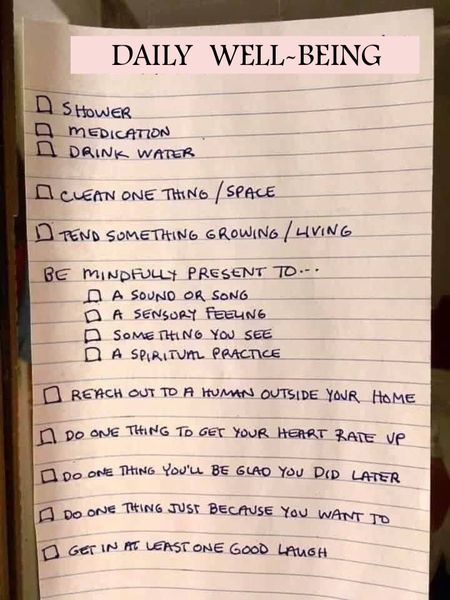 DAILY WELL-BEING
SHOWER
MEDICATION
DRINK WATER
CLEAN ONE THING/SPACE
TEND SOMETHING GROWING/LIVING
BE MINDFULLY PRESENT TO...
A SOUND OR SONG
A SENSORY FEELING
SOMETHING YOU SEE
A SPIRITUAL PRACTICE
REACH OUT TO A HUMAN OUTSIDE YOUR HOME
DO ONE THING TO GET YOUR HEART RATE UP
DO ONE THING YOU'LL BE GLAD YOU DID LATER
DO ONE THING JUST BECAUSE YOU WANT TO
GET IN AT LEAST ONE GOOD LAUGH